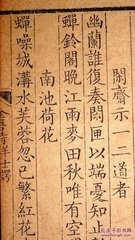 閒齋示一二道者
幽蘭誰復奏閒匣以端憂知止
蟬鈴閣晚江雨麥田秋唯有空
南池荷花
蟬噪城溝水芙蓉忽已繁紅花